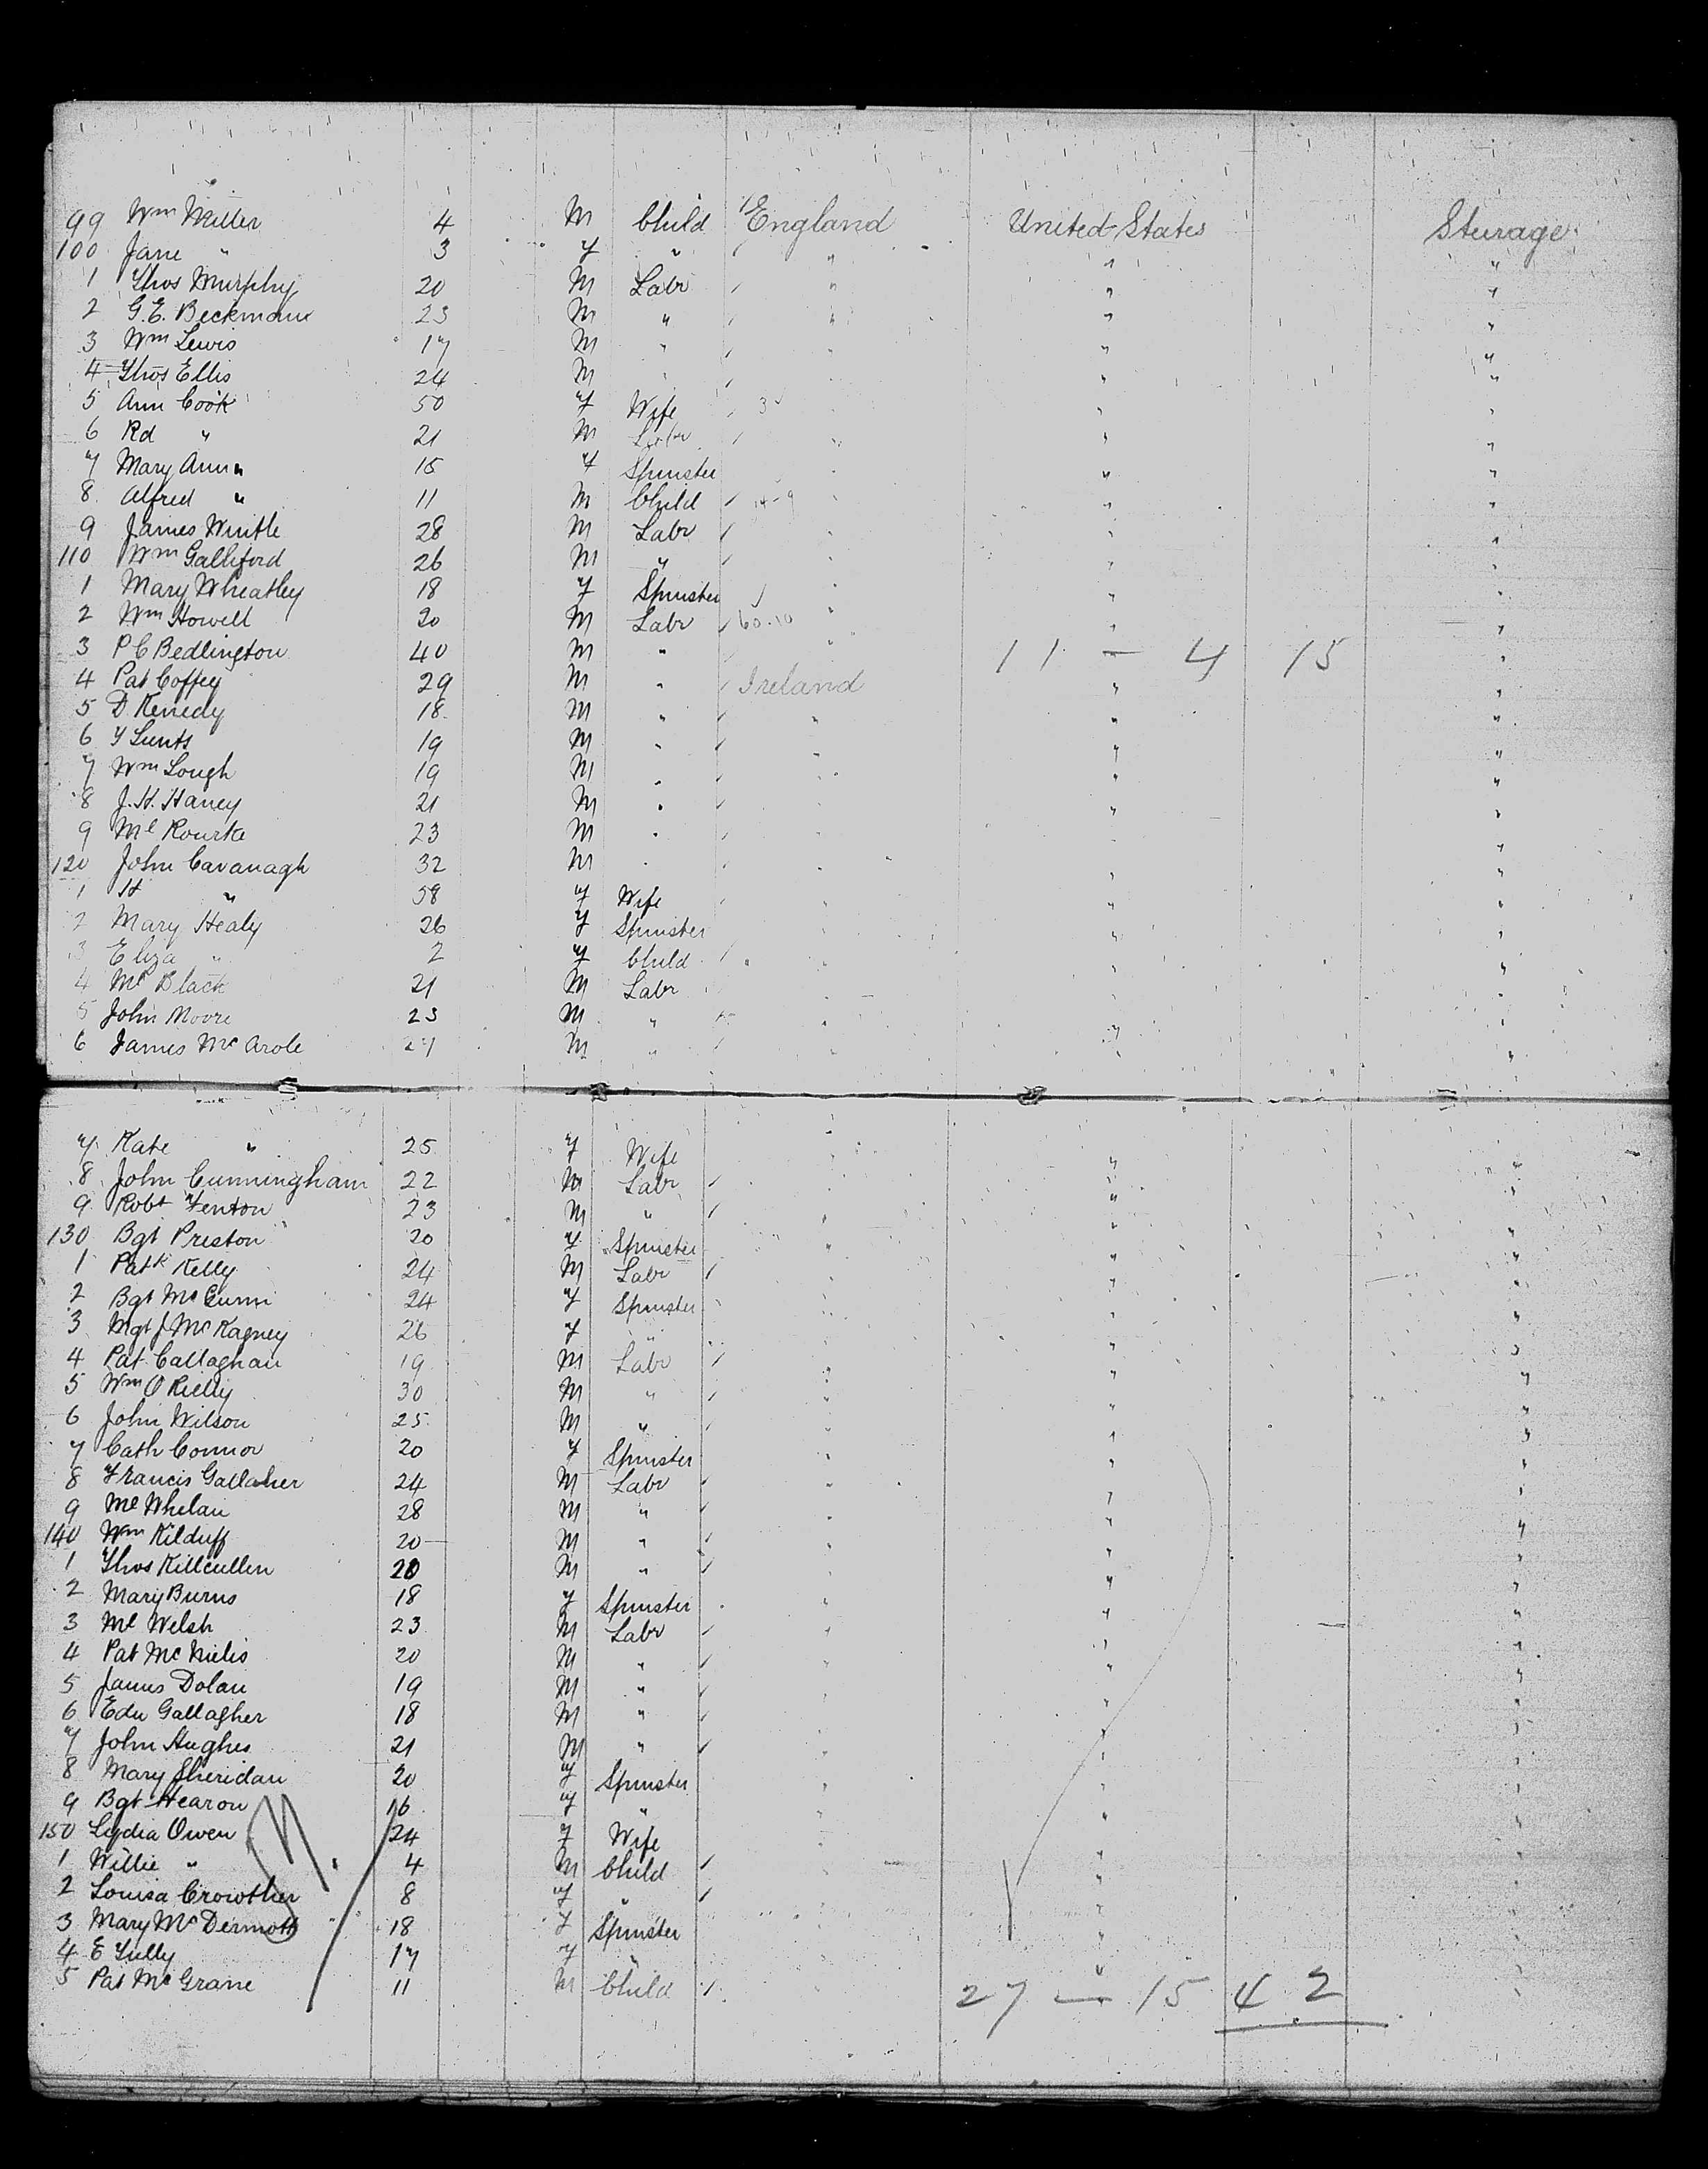 99 Wm Miller 4 M Child England United States Sturage
100 Jane " 3 F " " " "
1 Thos Murphy 20 M Labr " " "
2 G.E. Beckmann 23 M " " " "
3 Wm Lewis 17 M " " "
4 Thos Ellis 24 M " " "
5 Ann Cook 50 F Wife " "
6 Rd " 21 M Labr " " "
7 Mary Ann " 15 F Spinster " "
8 Alfred " 11 M Child " " "
9 James Wintle 28 M Labr " " "
110 Wm Galliford 26 M " " " "
1 Mary Wheatley 18 F Spinster " " "
2 Wm Howell 20 M Labr 60.10 " " "
3 P C Bedlington 40 M " " 11 - 4 15 "
4 Pat Coffey 29 M " Ireland " "
5 D Kenedy 18 M " " " "
6 Lunts 19 M " " " "
7 Wm Lough 19 M " " " "
8 J. H. Haney 21 M " " " "
9 Ml Rourke 23 M " " " "
120 John Cavanagh 32 M " " " "
1 H " 58 F Wife " "
2 Mary Healy 26 F Spinster " "
3 Eliza " 2 F Child " " "
4 Black 21 M Labr " " "
5 John Moore 23 M " " " "
6 James Mc M " " "
7 Kate " 25 F Wife " "
8 John Cunningham 22 M Labr " "
9 Robt Fenton 23 M " " " "
130 Bgt Preston 20 F Spinster " "
1 Patk Kelly 24 M Labr " "
2 Bgt Mc 24 F Spinster " "
3 Mgt J Mc Kagney 26 F " " "
4 Pat Callaghan 19 M Labr " " "
5 Wm O Rielly 30 M " " " "
6 John Wilson 25 M " " " "
7 Cath Connor 20 F Spinster " "
8 Francis Gallagher 24 M Labr " " "
9 Ml Whelan 28 M " " " "
140 Wm Kilduff 20 M " " " "
1 Thos Killcullen 20 M " " " "
2 Mary Burns 18 F Spinster " " "
3 Ml Welsh 23 M Labr " " "
4 Pat Mc Nielis 20 M " " " "
5 James Dolan 19 M " " " "
6 Edw Gallagher 18 M " " " "
7 John Hughes 21 M " " " "
8 Mary Sheridan 20 F Spinster " " "
9 Bgt Hearon 16 F " " " "
150 Lydia Owen 24 F Wife " " "
1 Willie " 4 M Child " "
2 Louisa Crowther 8 F " " "
3 Mary McDermott 18 F Spinster " "
4 E Tully 17 F " " "
5 Pat McGrane 11 M Child 27 - 15 42 "